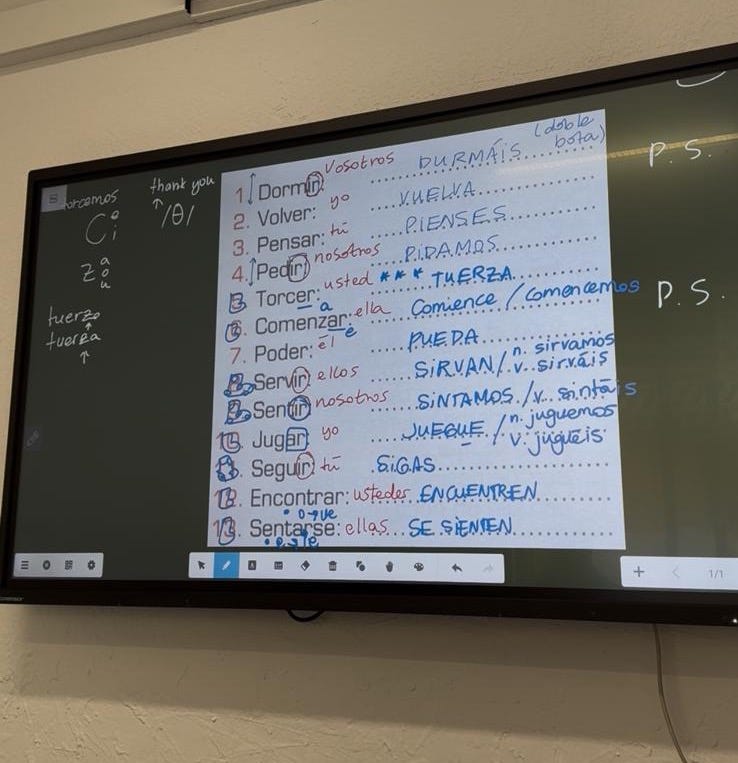 orcemos
C e i
z a o u
tuerzo
tuerza
thank you
/θ/
(doble bota)
1. Dormir: Vosotros DURMÁIS
2. Volver: yo VUELVA
3. Pensar: tú PIENSES
4. Pedir: nosotros PIDAMOS
5. Torcer: usted *** TUERZA
a
6. Comenzar: ella Comience / Comencemos
e
7. Poder: él PUEDA
8. Servir: ellos SIRVAN / n. sirvamos
v. sirváis
9. Sentir: nosotros SINTAMOS / v. sintáis
10. Jugar: yo JUEGUE / n. juguemos
v. juguéis
11. Seguir: tú SIGAS
12. Encontrar: ustedes ENCUENTREN
• o→ue
13. Sentarse: ellas SE SIENTEN
• e→ie
P.S.
P.S.
1/1